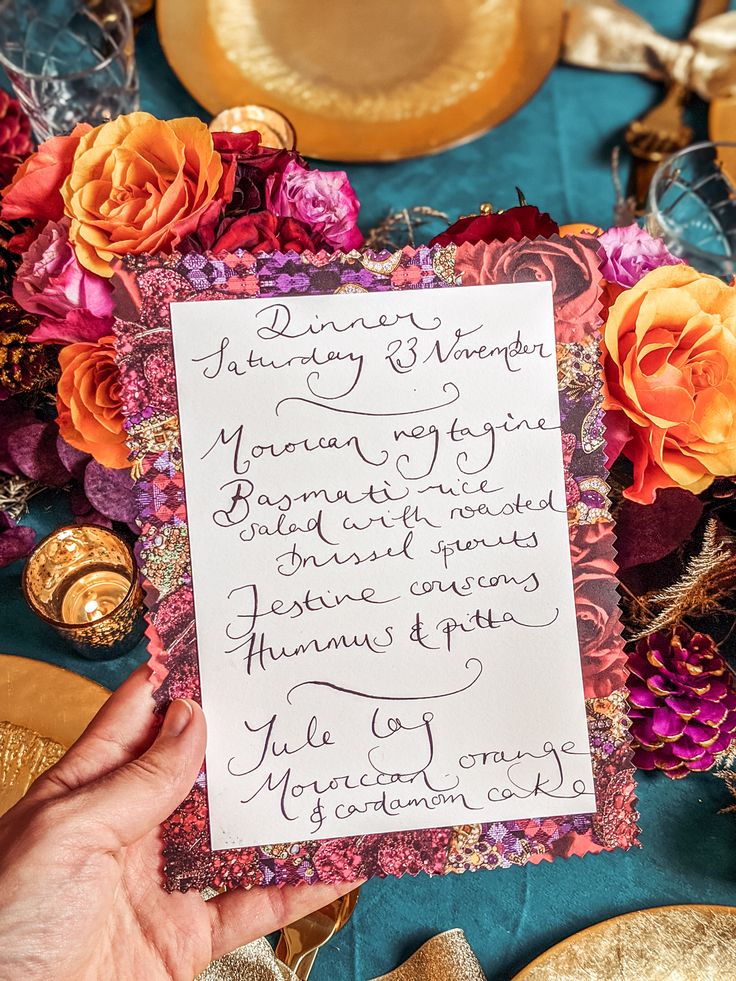 Dinner
Saturday 23 November
Moroccan veg tagine
Basmati rice
salad with roasted
Brussel sprouts
Festive couscous
Hummus & pitta
Yule log
Moroccan orange
& cardamom cake